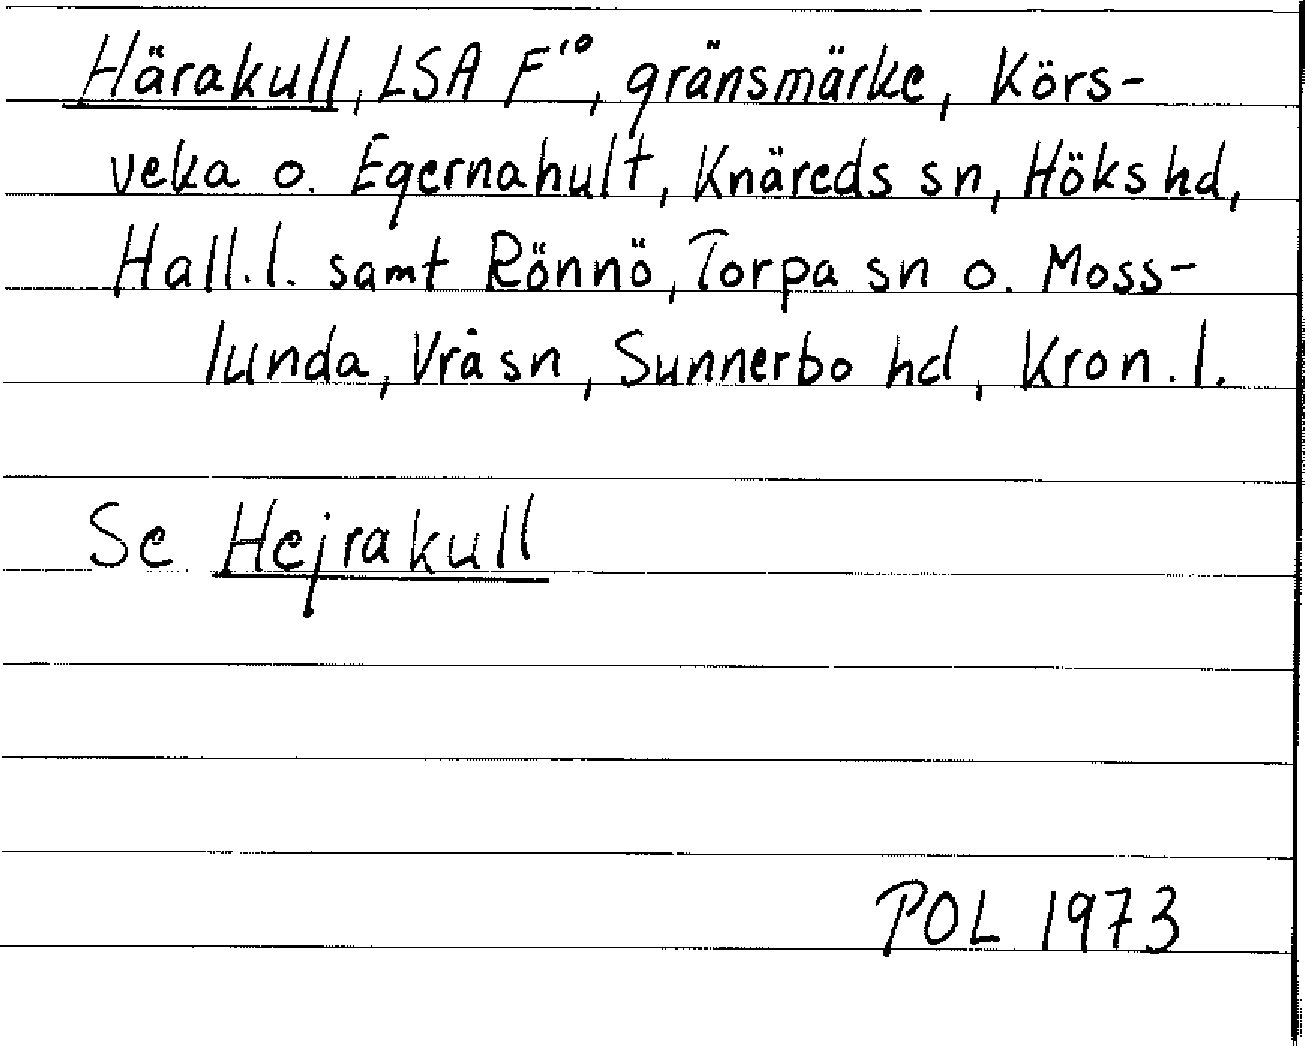 Härakull, LSA F¹⁰, gränsmärke, Körs-
veka o. Egernahult, Knäreds sn, Höks hd,
Hall.l. samt Rönnö, Torpa sn o. Moss-
lunda, Vrå sn, Sunnerbo hd, Kron.l.
Se Hejrakull
POL 1973